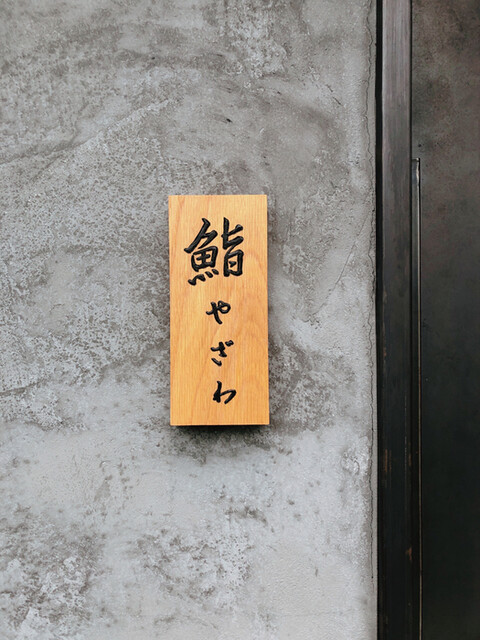 鮨やざわ